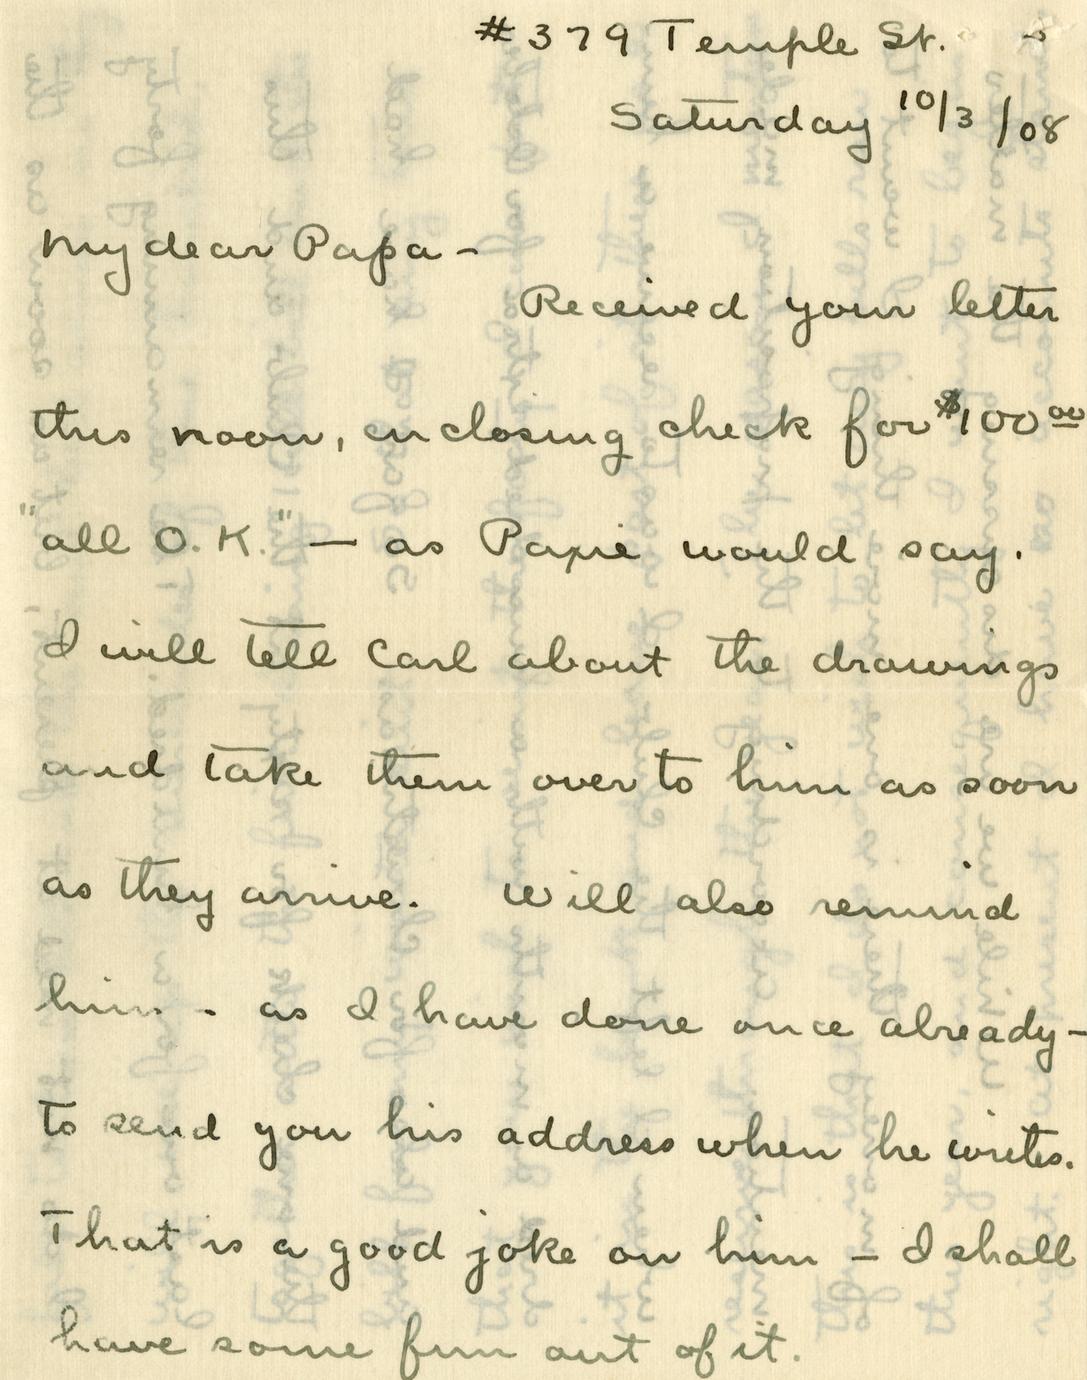 #379 Temple St.
Saturday 10/3/08
My dear Papa -
Received your letter
this noon, enclosing check for $100 00
"all O.K." — as Papie would say.
I will tell Carl about the drawings
and take them over to him as soon
as they arrive. Will also remind
him - as I have done once already -
to send you his address when he writes.
That is a good joke on him - I shall
have some fun out of it.